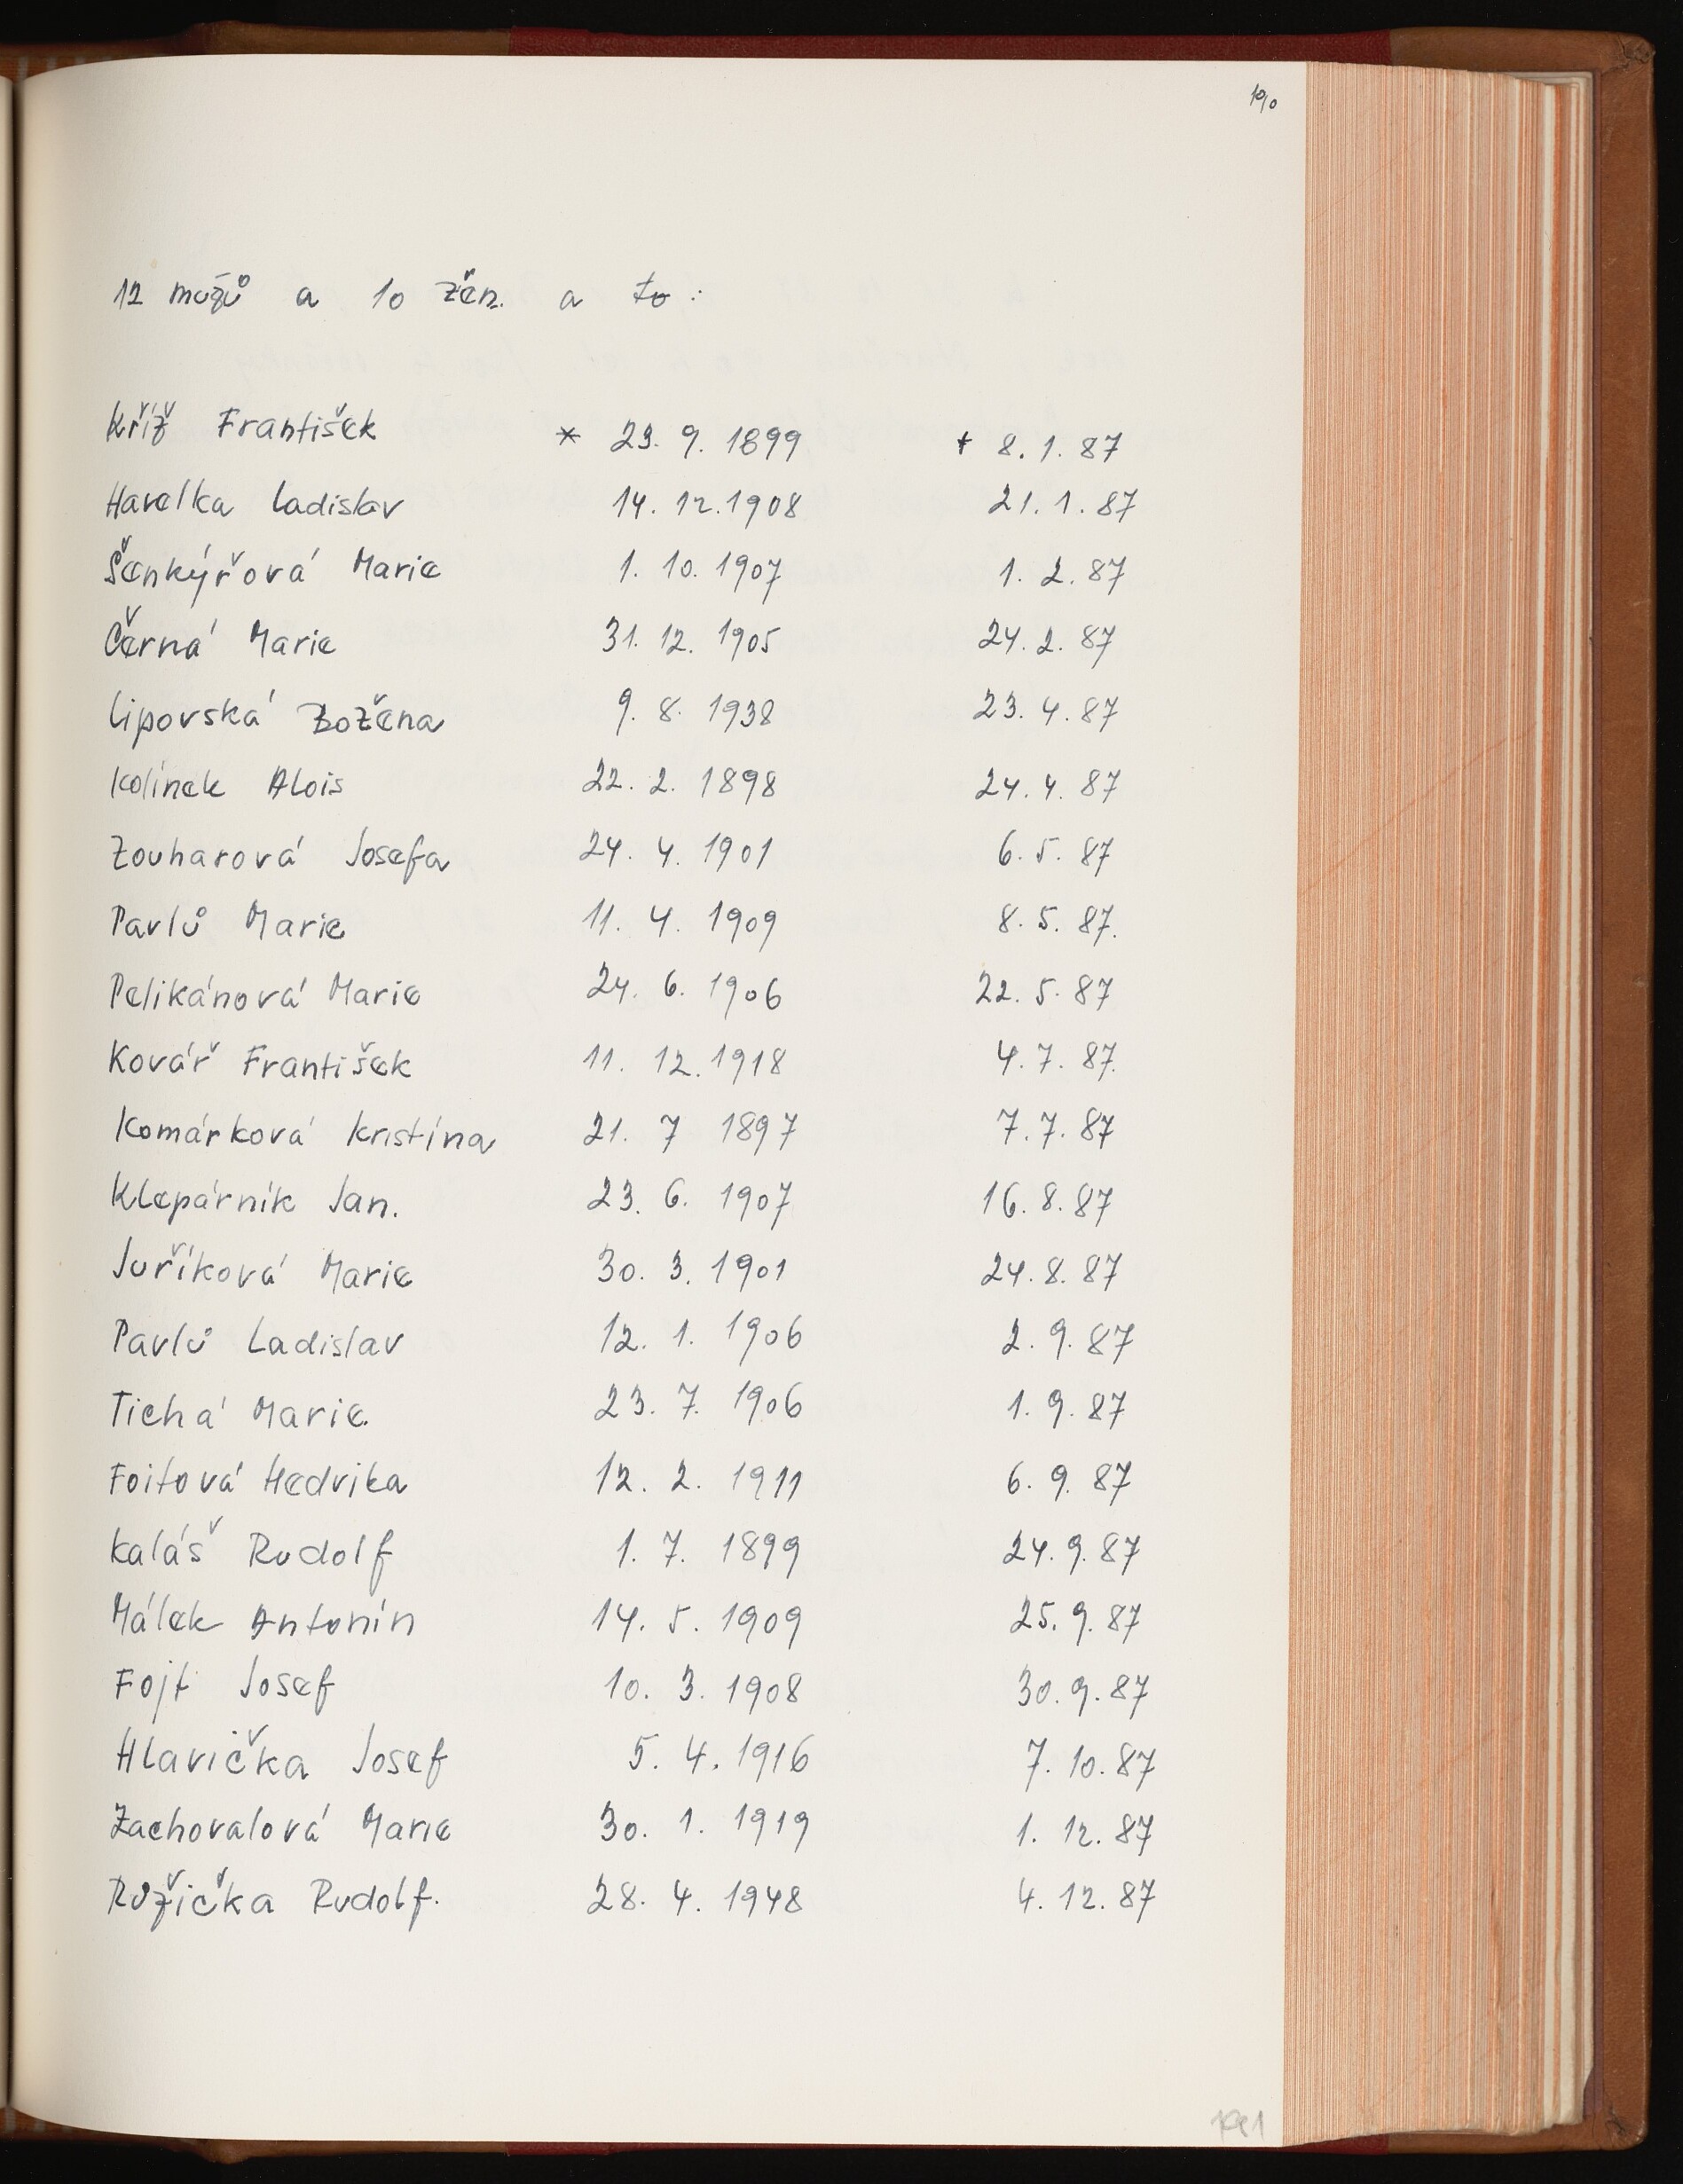 190
12 mužů a 10 žen. a to:
Kříž František * 23. 9. 1899 † 8. 1. 87
Havelka Ladislav 14. 12. 1908 21. 1. 87
Šenkýřová Marie 1. 10. 1907 1. 2. 87
Černá Marie 31. 12. 1905 24. 2. 87
Lipovská Božena 9. 8. 1938 23. 4. 87
Kolínek Alois 22. 2. 1898 24. 4. 87
Zouharová Josefa 24. 4. 1901 6. 5. 87
Pavlů Marie 11. 4. 1909 8. 5. 87.
Pelikánová Marie 24. 6. 1906 22. 5. 87
Kovář František 11. 12. 1918 4. 7. 87.
Komárková Kristína 21. 7 1897 7. 7. 87
Klepárník Jan. 23. 6. 1907 16. 8. 87
Juříková Marie 30. 3. 1901 24. 8. 87
Pavlů Ladislav 12. 1. 1906 2. 9. 87
Tichá Marie. 23. 7. 1906 1. 9. 87
Foitová Hedvika 12. 2. 1911 6. 9. 87
Kaláš Rudolf 1. 7. 1899 24. 9. 87
Málek Antonín 14. 5. 1909 25. 9. 87
Fojt Josef 10. 3. 1908 30. 9. 87
Hlavička Josef 5. 4. 1916 7. 10. 87
Zachovalová Marie 30. 1. 1919 1. 12. 87
Růžička Rudolf. 28. 4. 1948 4. 12. 87
191